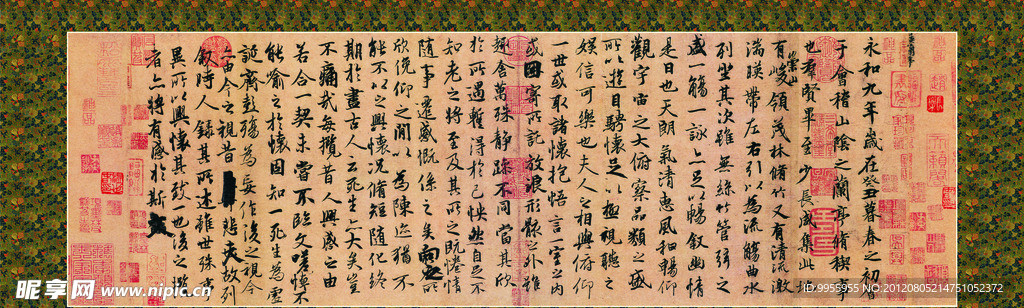 永和九年歲在癸丑暮春之初會
于會稽山陰之蘭亭脩稧事
也羣賢畢至少長咸集此地
有崇山峻領茂林脩竹又有清流激
湍暎帶左右引以為流觴曲水
列坐其次雖無絲竹管弦之
盛一觴一詠亦足以暢叙幽情
是日也天朗氣清惠風和暢仰
觀宇宙之大俯察品類之盛
所以遊目騁懷足以極視聽之
娛信可樂也夫人之相與俯仰
一世或取諸懷抱悟言一室之內
或因寄所託放浪形骸之外雖
趣舍萬殊靜躁不同當其欣
於所遇暫得於己怏然自足不
知老之將至及其所之既惓情
隨事遷感慨係之矣向之所
欣俛仰之閒以為陳迹猶不
能不以之興懷況脩短隨化終
期於盡古人云死生亦大矣豈
不痛哉每攬昔人興感之由
若合一契未嘗不臨文嗟悼不
能喻之於懷固知一死生為虛
誕齊彭殤為妄作後之視今
亦由今之視昔悲夫故列
叙時人錄其所述雖世殊事
異所以興懷其致一也後之攬
者亦將有感於斯文
昵享网 www.nipic.cn
ID:9955955 NO:20120805214751052372